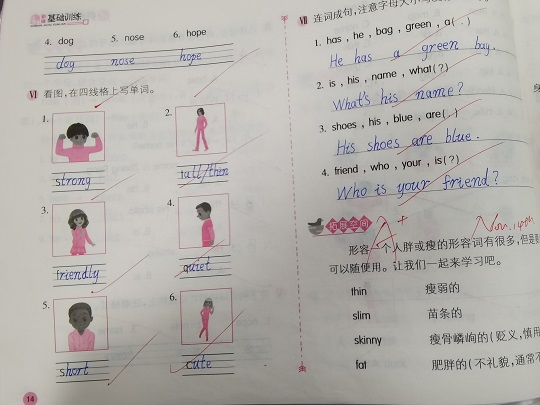 基础训练
4. dog 5. nose 6. hope
dog nose hope
VI 看图，在四线格上写单词。
1. 2.
strong tall/thin
3. 4.
friendly quiet
5. 6.
short cute
14
VII 连词成句，注意字母大小写
1. has , he , bag , green , a( . )
He has a green bag.
2. is , his , name , what( ? )
What's his name?
3. shoes , his , blue , are( . )
His shoes are blue.
4. friend , who , your , is( ? )
Who is your friend?
拓展空间
A+
Nov. 14th
形容一个人胖或瘦的形容词有很多，但
可以随便用。让我们一起来学习吧。
thin 瘦弱的
slim 苗条的
skinny 瘦骨嶙峋的(贬义，慎用
fat 肥胖的(不礼貌，通常不